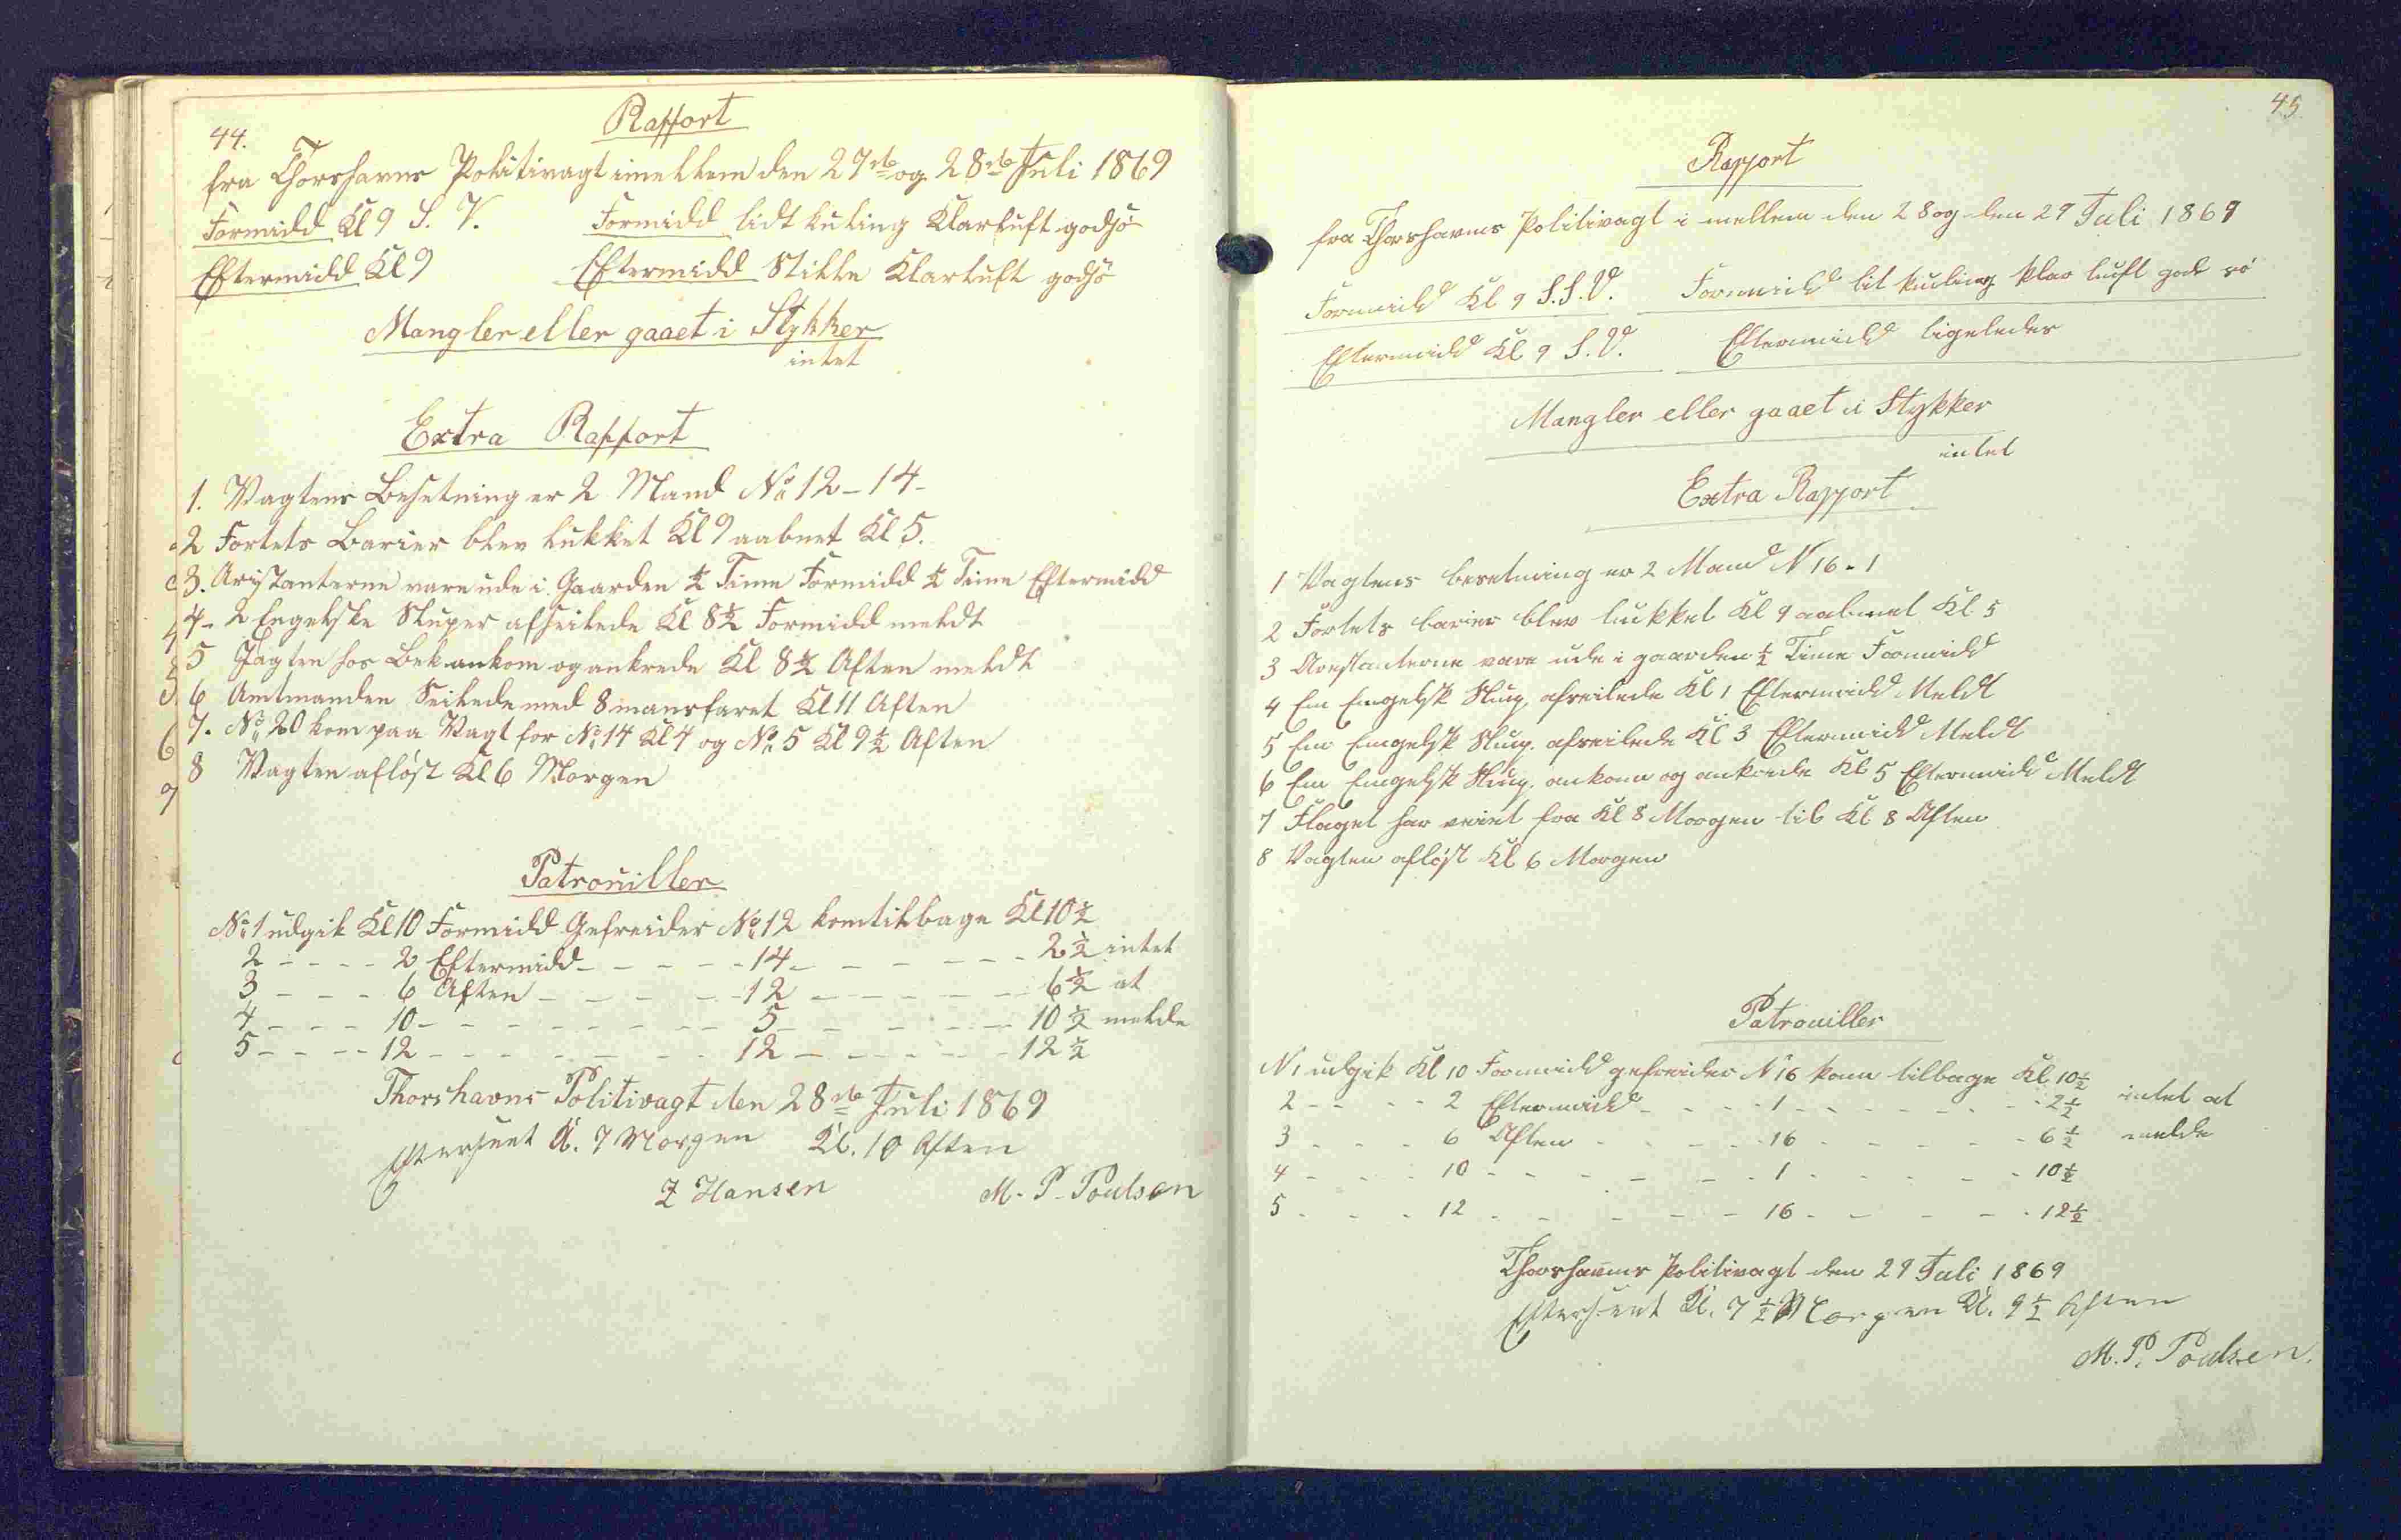 44.
Rapport
fra Thorshavns Politivagt imellem den 27de og 28de Juli 1869
Formidd Kl 9 S. V. Formidd lidt kuling Klarluft godsø
Eftermidd Kl 9 Eftermidd Stille Klarluft godsø
Mangler eller gaaet i Stykker
intet
Extra Rapport
1. Vagtens Besetning er 2 Mand No 12-14-
2 Fortets Barier blev lukket Kl 9 aabnet Kl 5.
3. Aristanterne vare ude i Gaarden ½ Time Formidd ½ Time Eftermidd
4- 2 Engelske Sluper afseilede Kl 8½ Formidd meldt
5 Jagten hos Bek ankom og ankrede Kl 8½ Aften meldt
6 Amtmanden Seilede med 8mansfaret Kl 11 Aften
7. No 20 kom paa Vagt for No 14 Kl 4 og No 5 Kl 9½ Aften
8 Vagten afløst Kl 6 Morgen
Patrouiller
No 1 udgik Kl 10 Formidd Gefreider No 12 kom tilbage Kl 10½
2 - - - - 2 Eftermidd - - - - - 14 - - - - - - - 2½ intet
3 - - - 6 Aften - - - - - 12 - - - - - - 6½ at
4 - - - 10 - - - - - - - - 5 - - - - - - 10½ melde
5 - - - - 12 - - - - - - - 12 - - - - - - 12½
Thorshavns Politivagt den 28de Juli 1869
Efterseet Kl. 7 Morgen Kl. 10 Aften
Z Hansen M. P. Poulsen
45.
Rapport
fra Thorshavns Politivagt i mellem den 28 og den 29 Juli 1869
Formidd Kl 9 S.S.V. Formidd lit kuling klar luft gode sø
Eftermidd Kl 9 S.V. Eftermidd ligeledes
Mangler eller gaaet i Stykker
intet
Extra Rapport
1 Vagtens besetning er 2 Mand N 16 - 1
2 Fortets barier blev lukket Kl 9 aabnet Kl 5
3 Arestanterne vare ude i gaarden ½ Time Formidd
4 Em Emgelsk Slup. afseilede Kl 1 Eftermidd Meldt
5 Em Emgelsk Slup. afseilede Kl 3 Eftermidd Meldt
6 Em Emgelsk Slup. ankom og ankrede Kl 5 Eftermidd Meldt
7 Flaget har veiet fra Kl 8 Morgen til Kl 8 Aften
8 Vagten afløst Kl 6 Morgen
Patrouiller
N 1 udgik Kl 10 Formidd gefreider N 16 kom tilbage Kl 10½
2 - - - - 2 Eftermidd - - - - 1 - - - - - - - 2½ intet at
3 - - - 6 Aften - - - - - 16 - - - - - - 6½ melde
4 - - - 10 - - - - - - - 1 - - - - - - 10½
5 - - - 12 - - - - - - 16 - - - - - 12½
Thorshavns Politivagt den 29 Juli 1869
Efterseet Kl. 7½ Morgen Kl. 9½ Aften
M. P. Poulsen.